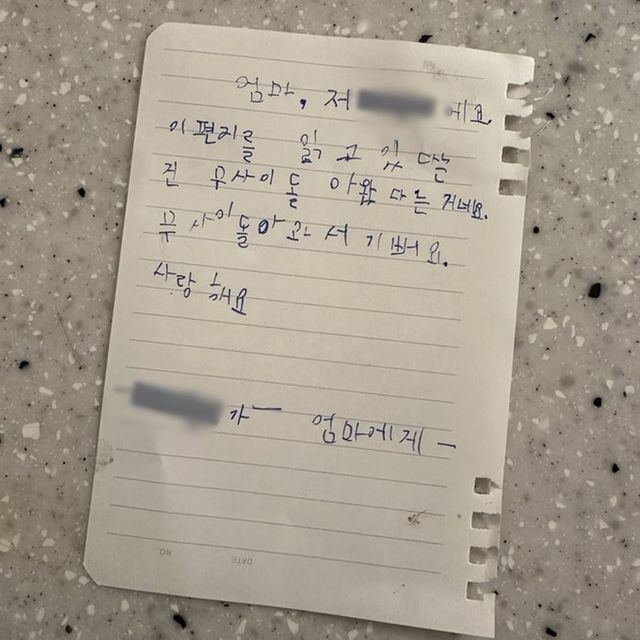 엄마, 저 예요
이 편지를 읽고 있다는
건 무사이 돌아왔다는 거네요.
무사이 돌아와서 기뻐요.
사랑해요
가 ㅡ 엄마에게 ㅡ
NO
DATE